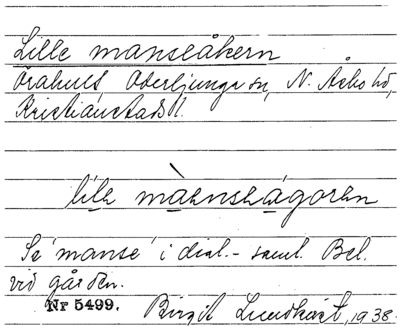 Lille manseåkern
Örahult Oderljunga sn, N. Åsbo hd,
Kristianstads l.
lile mànseågoren
Se 'manse' i dial.- saml. Bel.
vid gården.
Nr 5499. Birgit Lundkvist, 1938.